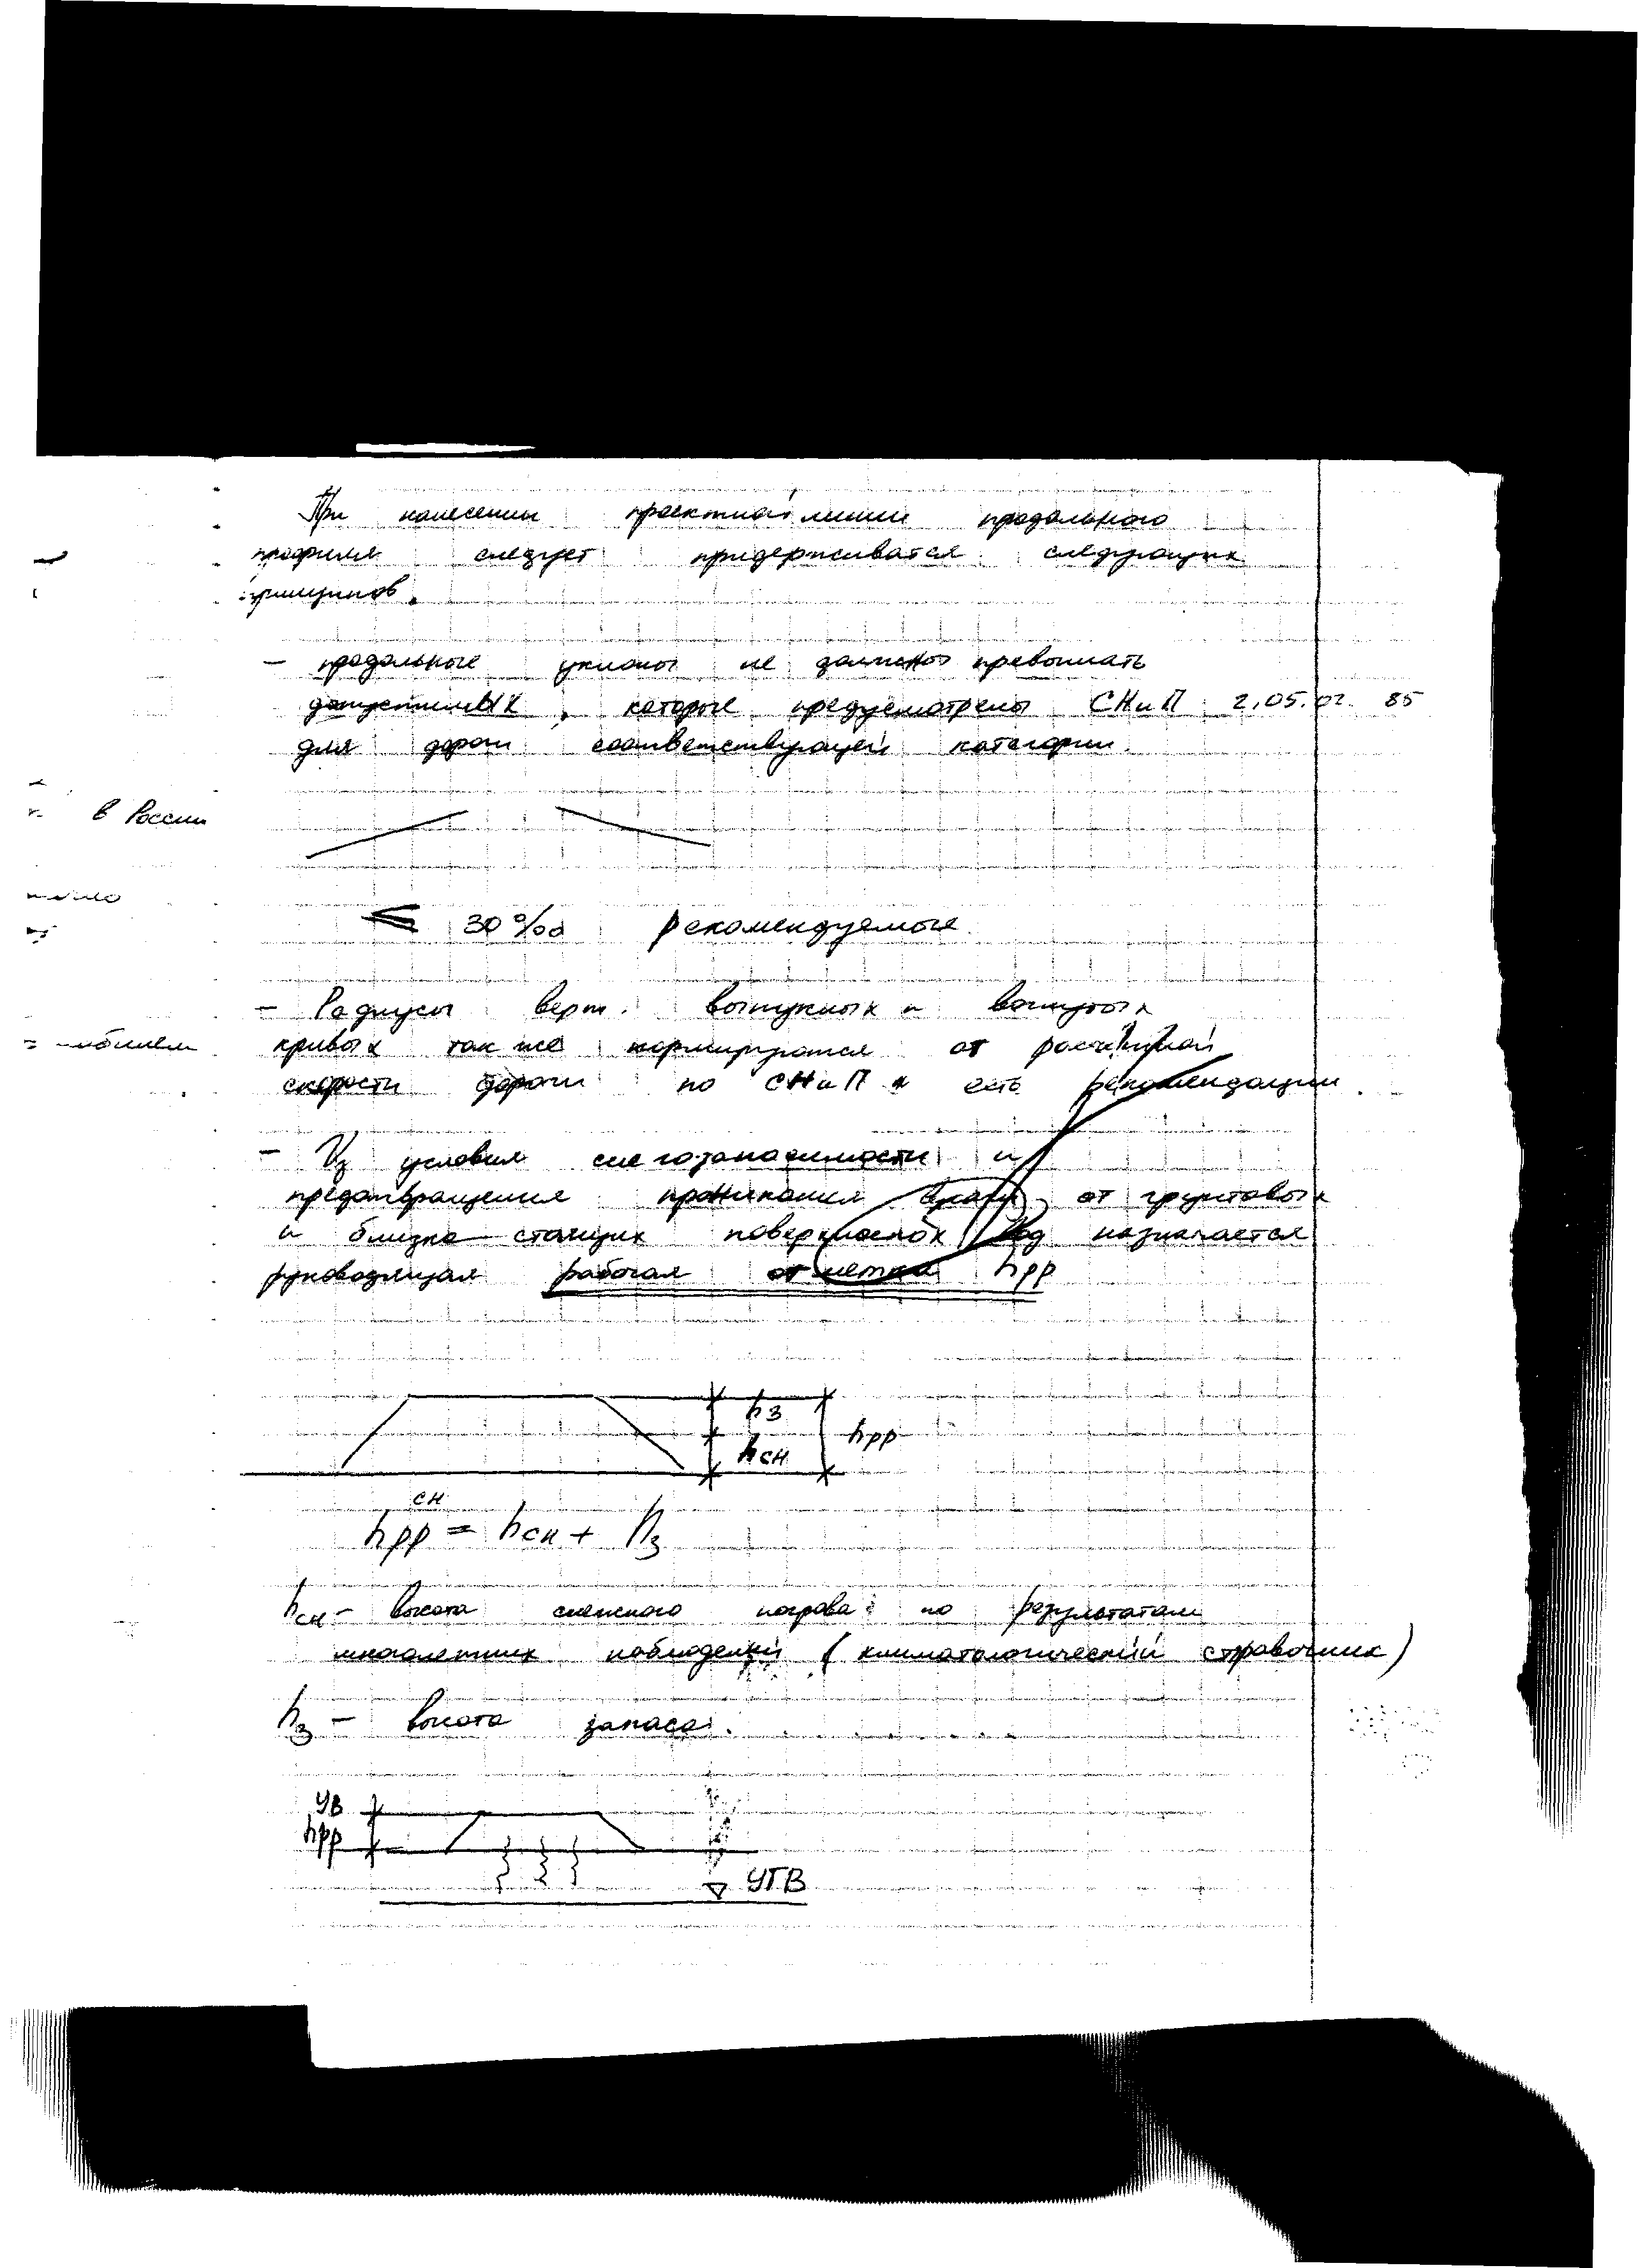 При нанесении проектной линии продольного
профиля следует придерживатся следующих
принципов.
- продольные уклоны не должны превышать
допустимых, которые предусмотрены СНиП 2.05.02. 85
для дороги соответствующей категории.
в России
≤ 30‰ рекомендуемые
- Радиусы верт. выпуклых и вогнутых
кривых так же нормируются от расчётной
скорости дороги по СНиП и есть рекомендации.
- Из условия снегозаносимости и
предотвращения проникания влаги от грунтовых
и близко стоящих поверхностных вод назначается
руководящая рабочая отметка hрр
hз
hсн
hрр
hрр^сн = hсн + hз
hсн - высота снежного покрова по результатам
многолетних наблюдений (климатологический справочник)
hз - высота запаса.
УВ
hрр
УГВ